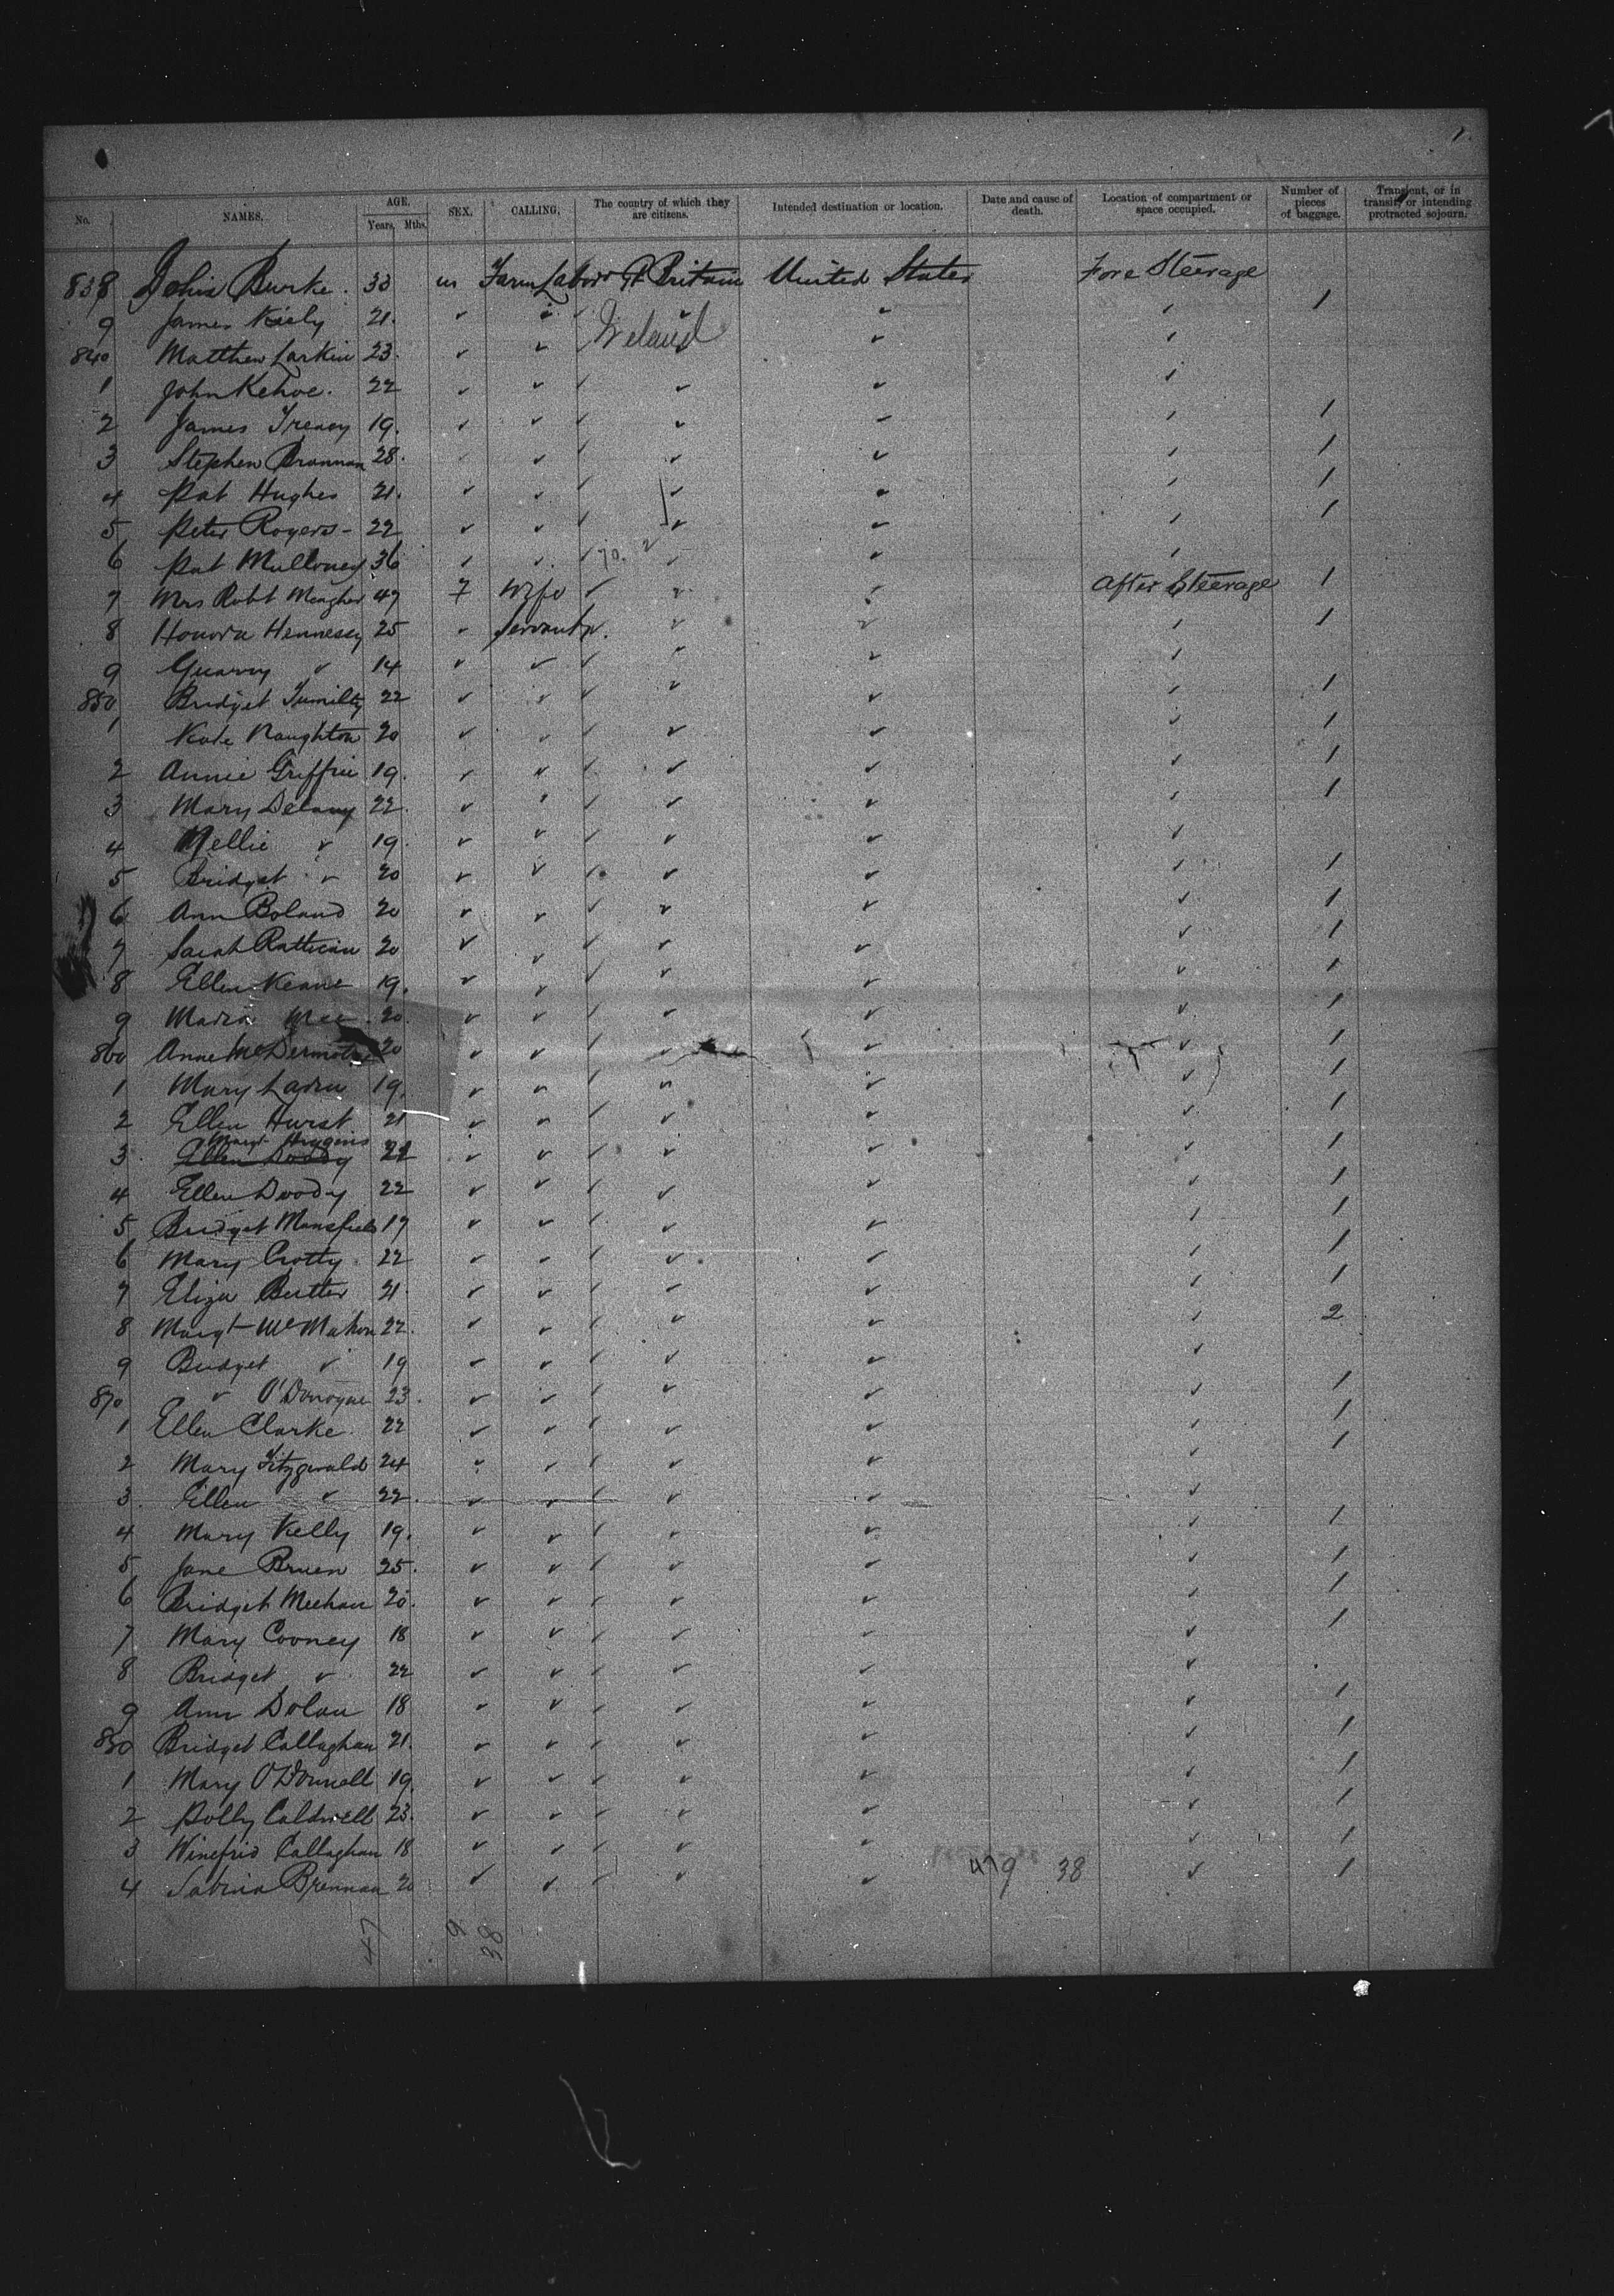 No. NAMES. AGE. Years. Mths. SEX. CALLING. The country of which they are citizens. Intended destination or location. Date and cause of death. Location of compartment or space occupied. Number of pieces of baggage. Transient, or in transit, or intending protracted sojourn.
838 John Burke 33 m Farm Labr Gt Britain United States Fore Steerage
9 James Kiely 21 ✓ ✓ ✓ ✓ ✓ ✓ 1
Ireland
840 Matthew Larkin 23 ✓ ✓ ✓ ✓ ✓
1 John Kehoe 22 ✓ ✓ ✓ ✓ ✓ ✓
2 James Treacy 19 ✓ ✓ ✓ ✓ ✓ ✓ 1
3 Stephen Brannan 28 ✓ ✓ ✓ ✓ ✓ ✓ 1
4 Pat Hughes 21 ✓ ✓ ✓ ✓ ✓ ✓ 1
5 Peter Rogers 22 ✓ ✓ ✓ ✓ ✓ ✓ 1
6 Pat Mulloney 36 ✓ ✓ ✓ ✓ ✓ ✓
7 Mrs Robt Meagher 47 F Wife ✓ ✓ ✓ After Steerage 1
8 Honora Hennessy 25 ✓ Servant ✓ ✓ ✓ ✓ 1
9 ✓ 14 ✓ ✓ ✓ ✓ ✓ ✓
850 Bridget Tumilty 22 ✓ ✓ ✓ ✓ ✓ ✓ 1
1 Kate Naughton 20 ✓ ✓ ✓ ✓ ✓ ✓ 1
2 Annie Griffin 19 ✓ ✓ ✓ ✓ ✓ ✓ 1
3 Mary Delany 22 ✓ ✓ ✓ ✓ ✓ ✓ 1
4 Nellie ✓ 19 ✓ ✓ ✓ ✓ ✓ ✓
5 Bridget ✓ 20 ✓ ✓ ✓ ✓ ✓ ✓ 1
6 Ann Boland 20 ✓ ✓ ✓ ✓ ✓ ✓ 1
7 Sarah Rattican 20 ✓ ✓ ✓ ✓ ✓ ✓ 1
8 Ellen Keane 19 ✓ ✓ ✓ ✓ ✓ ✓ 1
9 Maria Mee 20 ✓ ✓ ✓ ✓ ✓ ✓ 1
860 Anne McDermott 20 ✓ ✓ ✓ ✓ ✓ ✓ 1
1 Mary 19 ✓ ✓ ✓ ✓ ✓ ✓ 1
2 Ellen Hurst 21 ✓ ✓ ✓ ✓ ✓ ✓ 1
Margt Higgins
3 Ellen Doody 22 ✓ ✓ ✓ ✓ ✓ ✓ 1
4 Ellen Doody 22 ✓ ✓ ✓ ✓ ✓ ✓ 1
5 Bridget Mansfield 19 ✓ ✓ ✓ ✓ ✓ ✓ 1
6 Mary Crotty 22 ✓ ✓ ✓ ✓ ✓ ✓ 1
7 Eliza Butler 21 ✓ ✓ ✓ ✓ ✓ ✓ 1
8 Margt McMahon 22 ✓ ✓ ✓ ✓ ✓ ✓ 2
9 Bridget ✓ 19 ✓ ✓ ✓ ✓ ✓ ✓
870 ✓ O'Donogue 23 ✓ ✓ ✓ ✓ ✓ ✓ 1
1 Ellen Clarke 22 ✓ ✓ ✓ ✓ ✓ ✓ 1
2 Mary Fitzgerald 24 ✓ ✓ ✓ ✓ ✓ ✓ 1
3 Ellen ✓ 22 ✓ ✓ ✓ ✓ ✓ ✓
4 Mary Kelly 19 ✓ ✓ ✓ ✓ ✓ ✓ 1
5 Jane Bruen 25 ✓ ✓ ✓ ✓ ✓ ✓ 1
6 Bridget Meehan 20 ✓ ✓ ✓ ✓ ✓ ✓ 1
7 Mary Cooney 18 ✓ ✓ ✓ ✓ ✓ ✓ 1
8 Bridget ✓ 22 ✓ ✓ ✓ ✓ ✓ ✓
9 Ann Dolan 18 ✓ ✓ ✓ ✓ ✓ ✓ 1
880 Bridget Callaghan 21 ✓ ✓ ✓ ✓ ✓ ✓ 1
1 Mary O'Donnell 19 ✓ ✓ ✓ ✓ ✓ ✓ 1
2 Dolly Caldwell 23 ✓ ✓ ✓ ✓ ✓ ✓ 1
3 Winefrid Callaghan 18 ✓ ✓ ✓ ✓ ✓ ✓ 1
4 Sabina Brennan 20 ✓ ✓ ✓ ✓ ✓ 479 38 ✓ 1
47 9 38